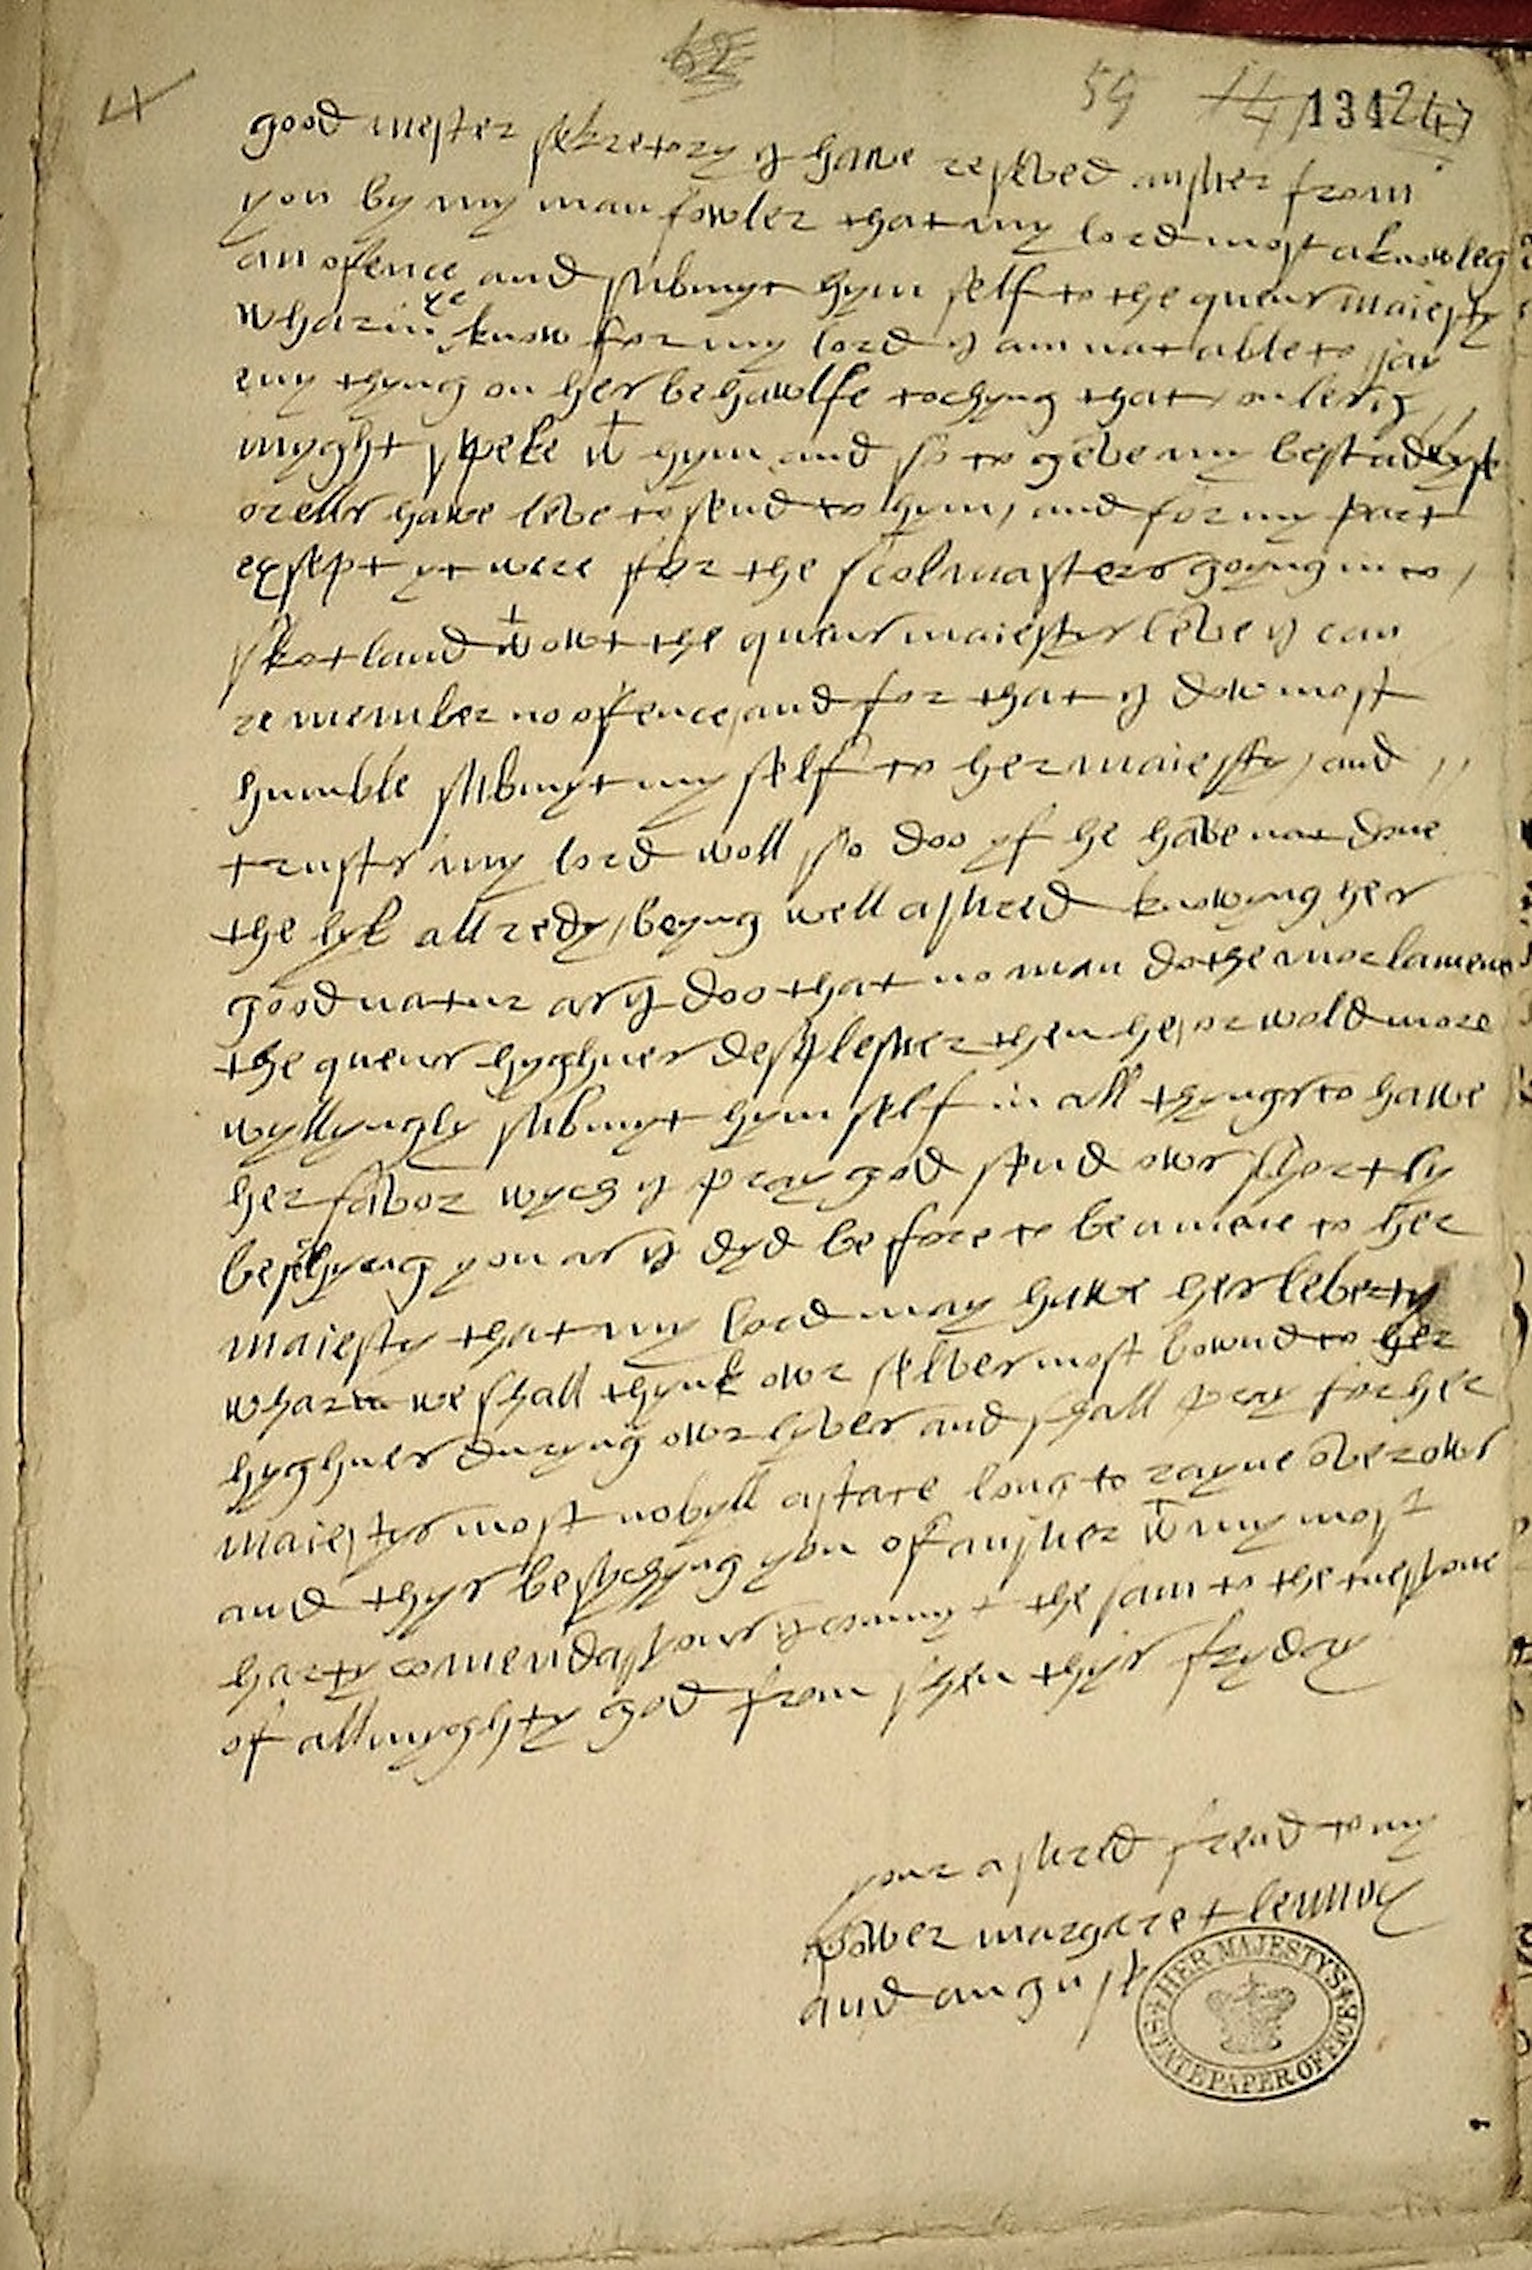 4
62
59
134
good mester sekretory y have reseved ansuer from
you by my man fowler that my lord most aknowleg
an ofence and submyt hym self to the quenes maiesty
wharin ye know for my lord y am nat able to say
eny thyng on hes behawlfe tochyng that onles y
myght speke wt hym and so to geve my best advys
orelles have leve to send to hym, and for my part
exsept yt were for the scolmasters goyng into
skotland wt owt the quenes maiestys leve y can
remember no ofence, and for that y dow most
humble submyt my self to her maiesty, and
trustes my lord woll so doo yf he have nat done
the lyk allredy, beyng well asured knowyng hes
good natur as y doo that no man dothe mor lament
the quenes hyghnes desplesuer then he, or wold more
wyllyngly submyt hym self in all thynges to have
her favor wych y pray god send ows shortly
besechyng you as y dyd before to be a mene to her
maiesty that my lord may have hes leberty
wharin we shall thynk owr selves most bownd to her
hyghnes duryng owr lyves and shall pray for her
maiestys most nobyll astate long to rayne over ows
and thys besychyng you of ansuer wt my most
harty comendasyons y commyt the sam to the tuesyone
of allmyghty god from shen thys fryday
your asured frend to my
power margaret lennox
and anguse
HER MAJESTYS STATE PAPER OFFICE